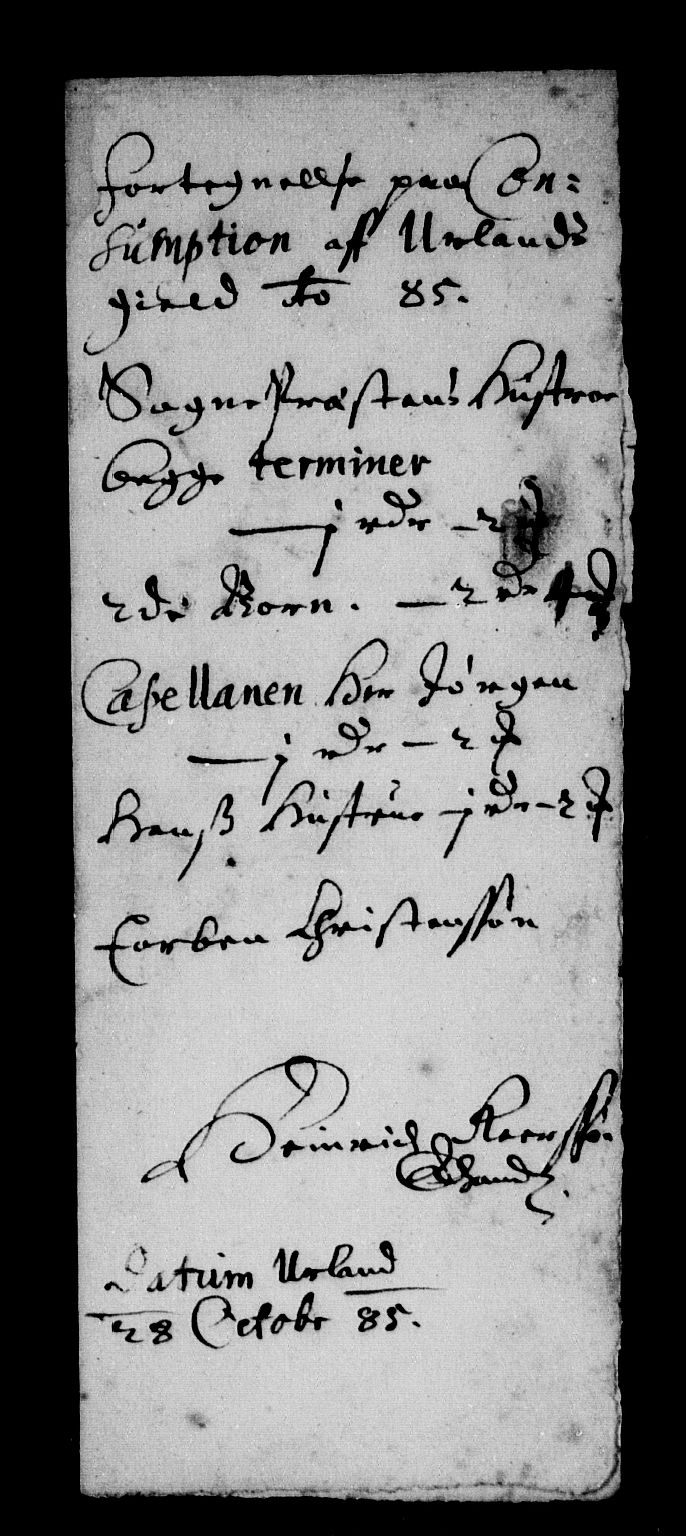 Fortegnellse paa Con=
sumption aff Urlands
gield Ao 85.
Sogne Præstens Hustroe
begge terminer
— j rdr – 2
2de Børn. — 2 rdr
Capellanen Her Jørgen
— j rdr – 2
Hanß Hustrue – j rdr – 2
Torben Christenssøn
Heinrich
Datum Urland
28 Octobr 85.